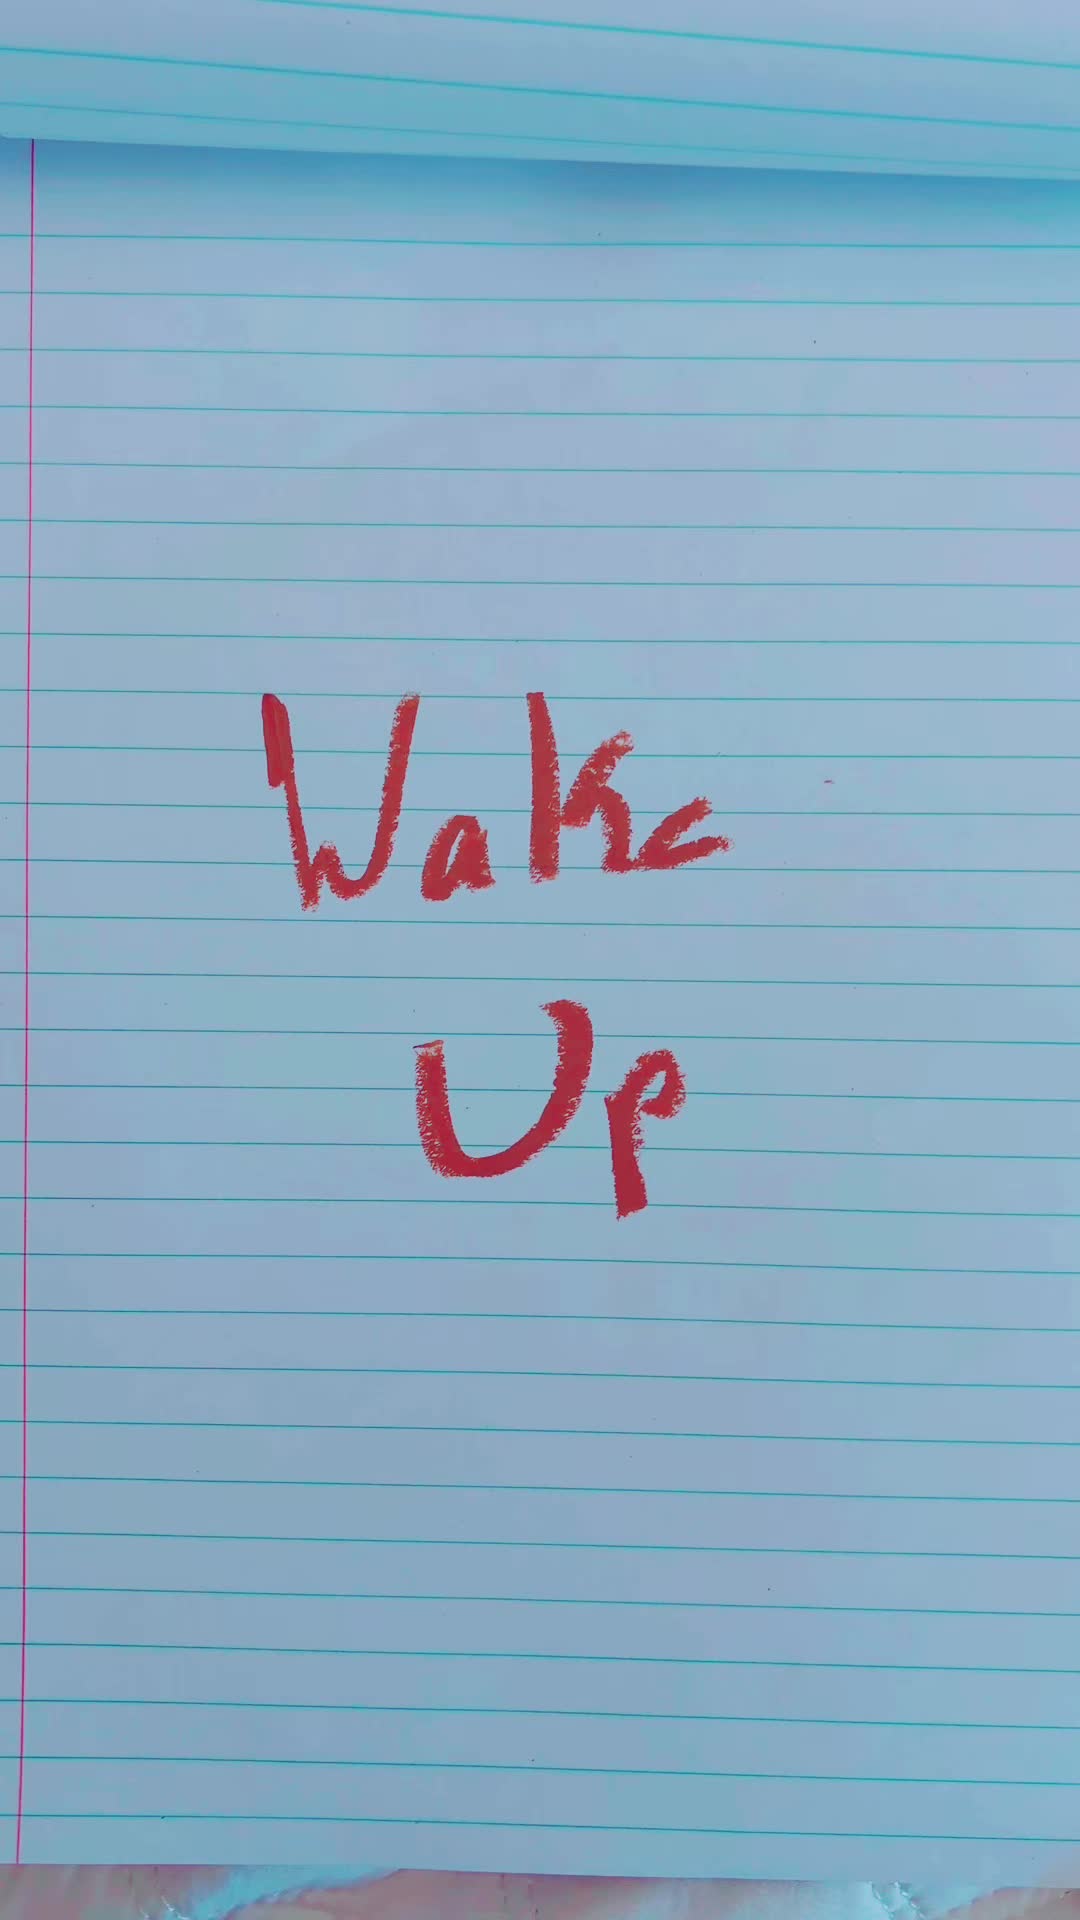 Wake
Up